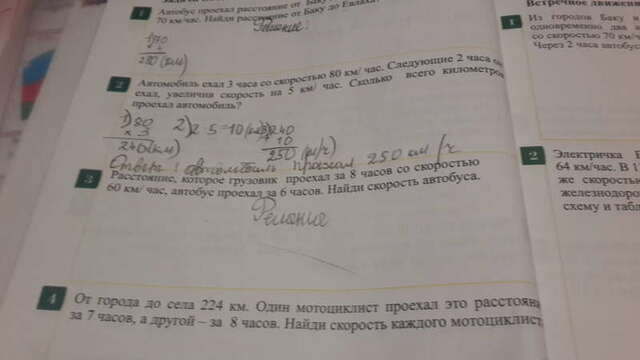 1 Автобус проехал расстояние от Баку
70 км/час. Найди расстояние от Баку до Евлаха?
Решение:
280 (км)
2 Автомобиль ехал 3 часа со скоростью 80 км/ час. Следующие 2 часа он
ехал, увеличив скорость на 5 км/ час. Сколько всего километров
проехал автомобиль?
1) 80 2) 2·5=10 240
× 3 10
240(км) 250 (км/ч)
Ответ: автомобиль проехал 250 км/ч
3 Расстояние, которое грузовик проехал за 8 часов со скоростью
60 км/ час, автобус проехал за 6 часов. Найди скорость автобуса.
Решение
4 От города до села 224 км. Один мотоциклист проехал это расстоян
за 7 часов, а другой – за 8 часов. Найди скорость каждого мотоциклист
Встречное движение
1 Из городов Баку и
одновременно два а
со скоростью 70 км/ч
Через 2 часа автобус
2 Электричка
64 км/час. В 1
же скоростью
железнодоро
схему и табл